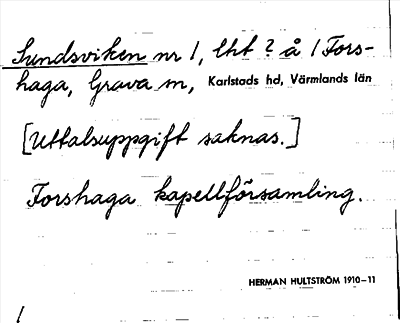 Sundsviken nr 1, lht ? å / Fors-
haga, Grava sn, Karlstads hd, Värmlands län
[Uttalsuppgift saknas.]
Forshaga kapellförsamling.
HERMAN HULTSTRÖM 1910–11
/